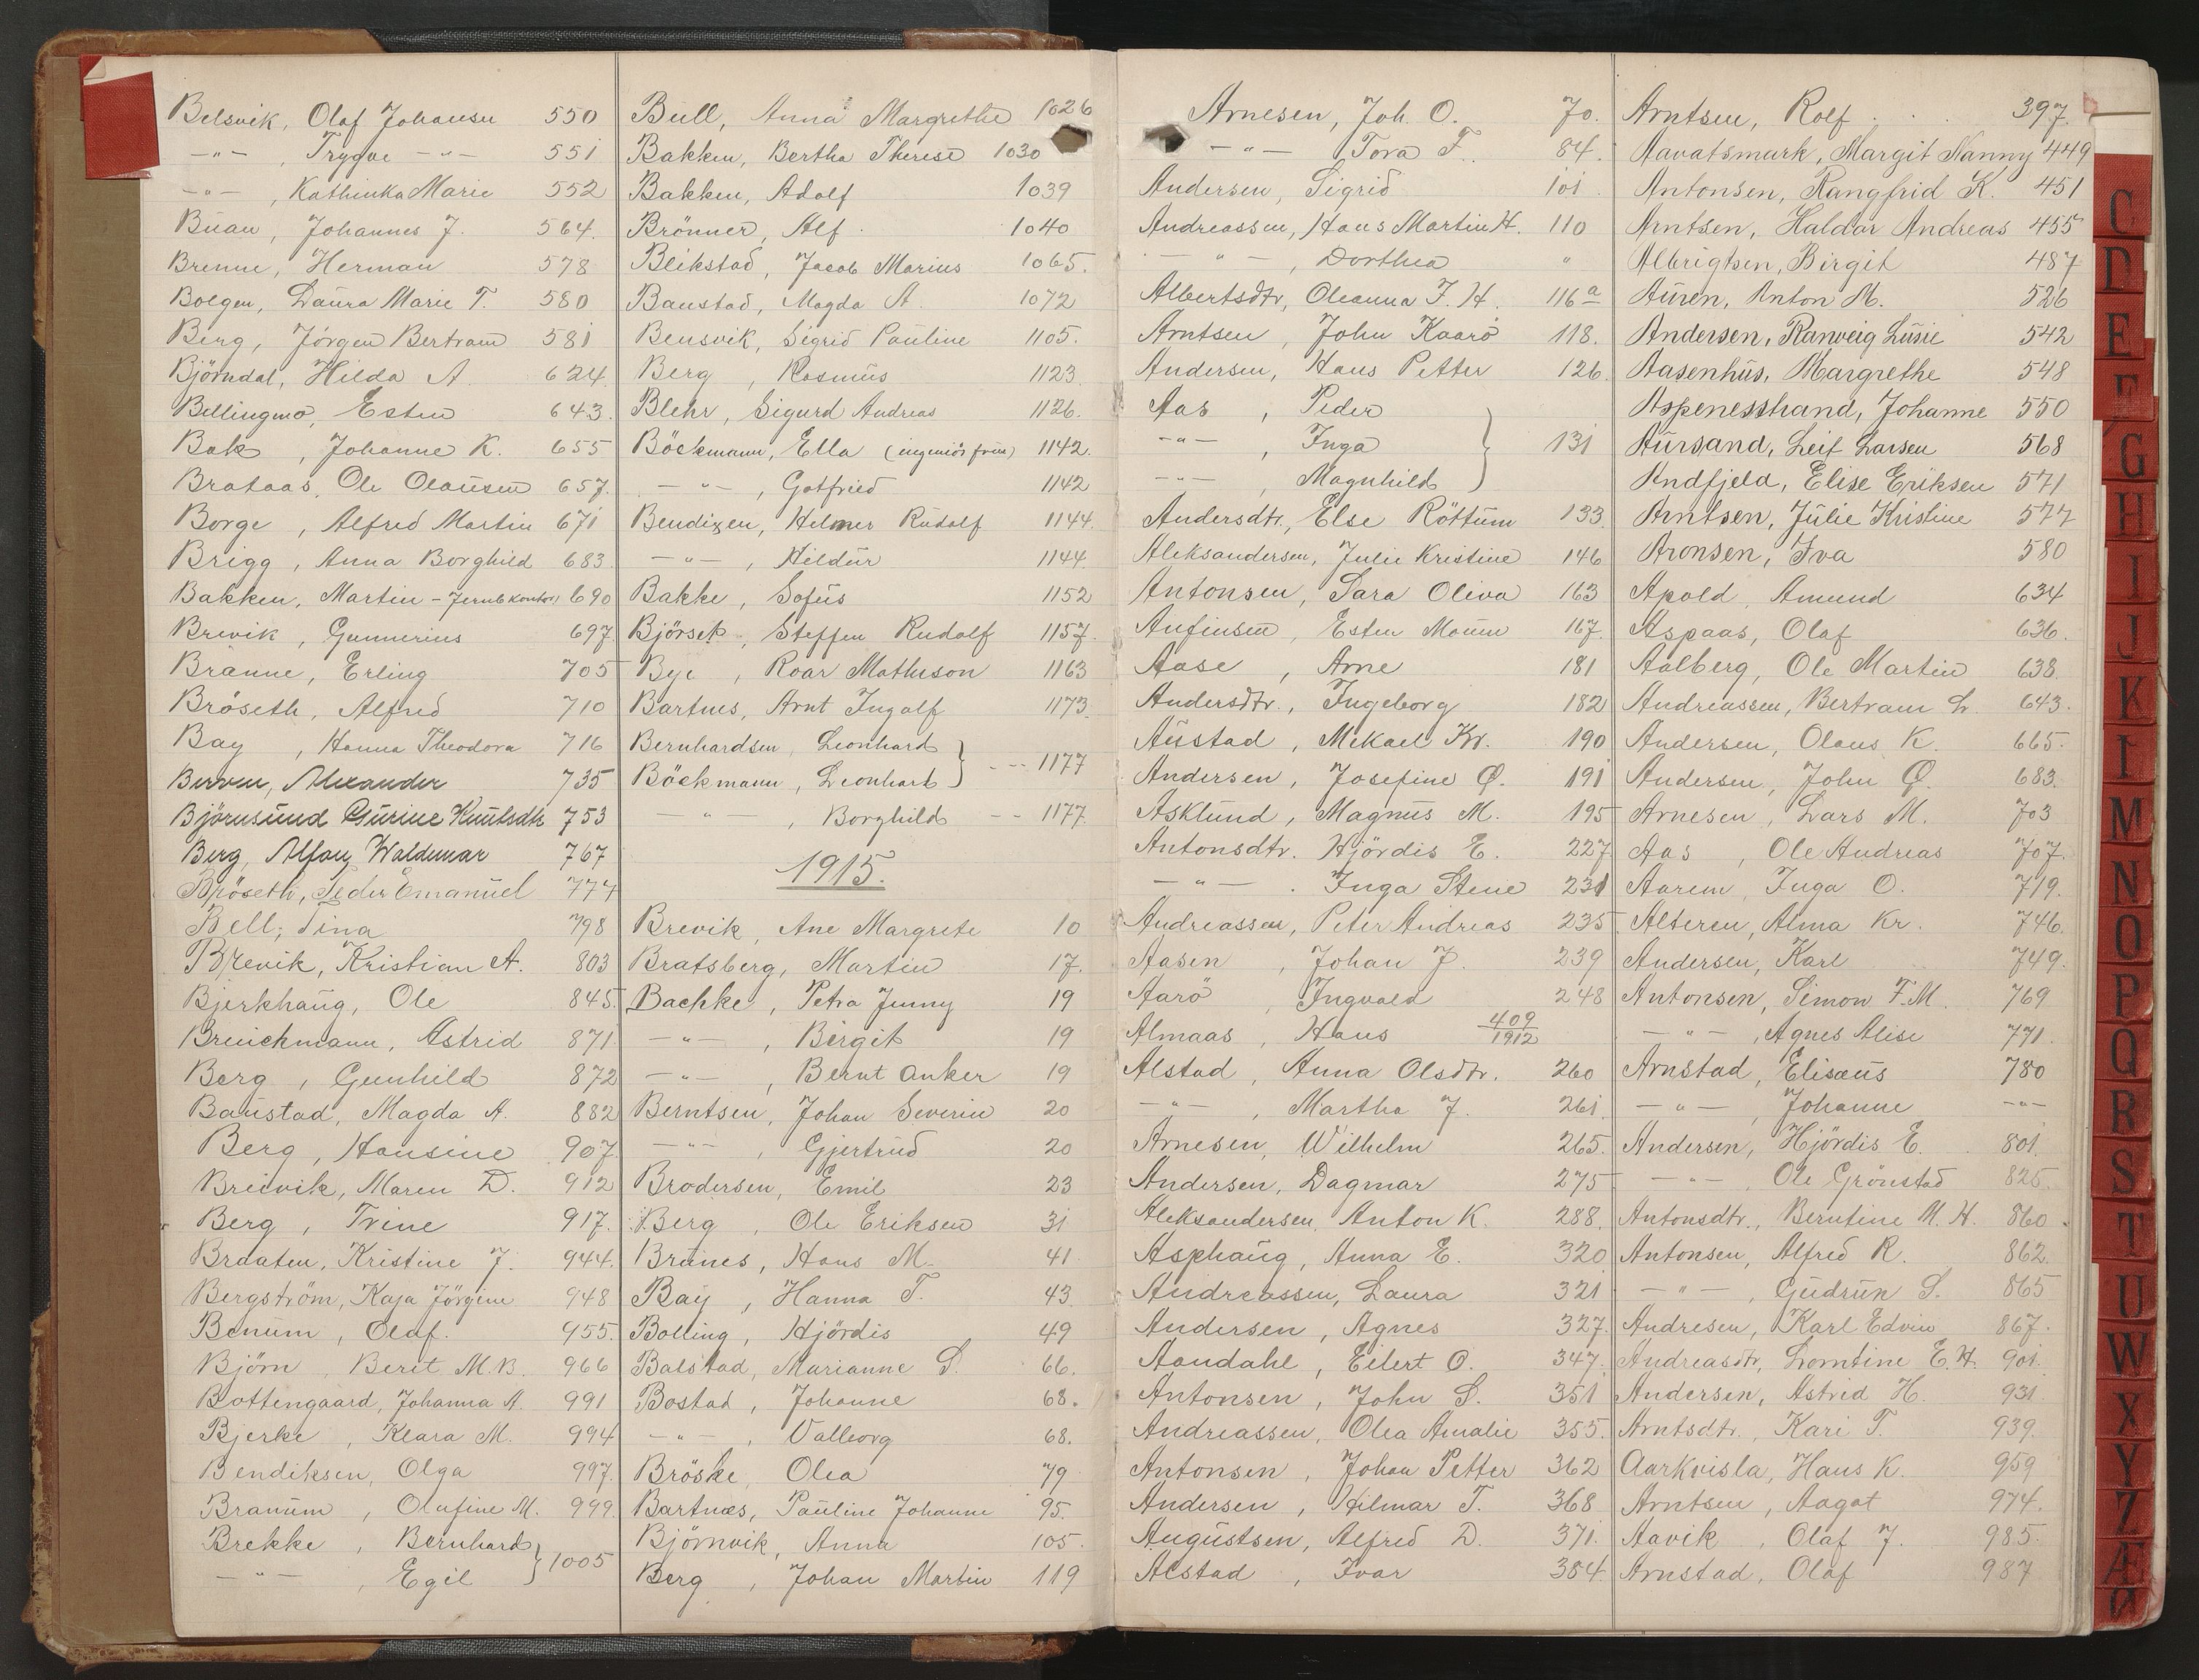 Belsvik, Olaf Johansen 550
—"— , Trygve —"— 551
—"— , Kathinka Marie 552
Buan, Johannes J. 564.
Brenne, Herman 578
Bolgen, Laura Marie T. 580
Berg, Jörgen Bertram 581
Björndal, Hilda A. 624.
Bellingmo, Esten 643.
Bak, Johanne K. 655
Brataas, Ole Olausen 657.
Borge, Alfred Martin 671
Brigg, Anna Borghild 683.
Bakken, Martin - Jernb kontor) 690
Brevik, Gunnerius 697.
Branne, Erling 705
Bröseth, Alfred 710
Bay, Hanna Theodora 716
Berven, Alexander 735
Björnsund Gurine Knutsdtr 753
Berg, Alfon Waldemar 767
Bröseth, Peder Emanuel 777
Bell, Tina 798
Brevik, Kristian A. 803
Bjerkhaug, Ole 845.
Bruickmann, Astrid 871
Berg, Gunhild 872
Baustad, Magda A. 882
Berg, Hansine 907.
Breivik, Maren D. 912
Berg, Trine 917.
Braaten, Kristine J. 944.
Bergström, Kaja Jörgine 948
Benum, Olaf. 955.
Björn, Berit M.B. 966
Bottengaard, Johanna A. 991
Bjerke, Klara M. 994
Bendiksen, Olga 997.
Branum, Olufine M. 999.
Brekke, Bernhard
—"— , Egil } 1005
Bull, Anna Margrethe 1026
Bakken, Bertha Therese 1030
Bakken, Adolf 1039
Brönner, Alf. 1040
Blekstad, Jacob Marius 1065.
Baustad, Magda A. 1072
Bensvik, Sigrid Pauline 1105.
Berg, Rasmus 1123.
Blehr, Sigurd Andreas 1126.
Böckmann, Ella (ingeniör frue) 1142.
—"— , Gotfried 1142
Bendixen, Helmer Rudolf 1144.
—"— , Hildur 1144.
Bakke, Sofus 1152
Björsek, Steffen Rudolf 1157.
Bye, Roar Mathison 1163
Bartnes, Arnt Ingolf 1173.
Bernhardsen, Leonhard
Böckmann, Leonhard } - -- 1177
—"— , Borghild -- 1177.
1915.
Brevik, Ane Margrete 10
Bratsberg, Martin 17.
Bachke, Petra Jenny 19
—"— , Birgit 19
—"— , Bernt Anker 19
Berntsen, Johan Severin 20
—"— , Gjertrud 20
Brodersen, Emil 23
Berg, Ole Eriksen 31
Brunes, Hans M. 41.
Bay, Hanna T. 43.
Bolling, Hjördis 49
Balstad, Marianne S. 66.
Bostad, Johanne 68.
—"— , Valborg 68.
Bröske, Olea 79
Bartnæs, Pauline Johanne 95.
Björnvik, Anna 105.
Berg, Johan Martin 119
Arnesen, Joh. O. 70.
—"— Tora F. 84.
Andersen, Sigrid 101.
Andreassen, Hans Martin H. 110
—"— , Dorthea "
Albertsdtr, Oleanna J. H. 116 a
Arntsen, John Kaarö 118.
Andersen, Hans Petter 126.
Aas, Peder
—"— , Inga } 131
—"— , Magnhild
Andersdtr., Else Röttum 133.
Aleksandersen, Julie Kristine 146
Antonsen, Sara Oliva 163
Anfinsen, Esten Moum 167.
Aase, Arne 181
Andersdtr., Ingeborg 182
Austad, Mekael Kr. 190
Andersen, Josefine Ø. 191
Asklund, Magnus M. 195
Antonsdtr. Hjördis E. 227
—"— . Inga Stene 231
Andreassen, Peter Andreas 235
Aasen, Johan P. 239
Aarö, Ingvald 248
Almaas, Hans 409/1912
Alstad, Anna Olsdtr. 260
—"— , Martha J. 261
Arnesen, Wilhelm 265.
Andersen, Dagmar 275
Aleksandersen, Anton K. 288.
Asphaug, Anna E. 320
Andreassen, Laura 321
Andersen, Agnes 327.
Aandahl, Eilert O. 347.
Antonsen, John S. 351
Andreassen, Olea Amalie 355.
Antonsen, Johan Petter 362
Andersen, Hilmar T. 368
Augustsen, Alfred D. 371.
Alstad, Ivar 384.
Arntsen, Rolf . . . 397.
Aavatsmark, Margit Nanny 449
Antonsen, Rangfrid K. 451
Arntsen, Haldor Andreas 455
Albrigtsen, Birgit 487
Auren, Anton M. 526
Andersen, Ranveig Lusie 542
Aasenhus, Margrethe 548
Aspenesstrand, Johanne 550
Aursand, Leif Larsen 568
Andfjeld, Elise Eriksen 571
Arntsen, Julie Kristine 577
Aronsen, Iva 580
Apold, Amund 634
Aspaas, Olaf 636.
Aalberg, Ole Martin 638.
Andreassen, Bertram L. 643.
Andersen, Olaus K. 665.
Andersen, John Ø. 683.
Arnesen, Lars M. 703
Aas, Ole Andreas 707.
Aarem, Inga O. 719.
Alteren, Alma Kr. 746.
Andersen, Karl 749.
Antonsen, Simon F.M. 769
—"— , Agnes Alise 771.
Arnstad, Elisæus 780
—"— , Johanne —"—
Andersen, Hjördis E. 801.
—"— , Ole Grönstad 825.
Antonsdtr., Berntine M. H. 860.
Antonsen, Alfred R. 862.
—"— , Gudrun S. 865
Andresen, Karl Edvin 867.
Andreasdtr, Lorntine E.H. 901.
Andersen, Astrid H. 931
Arntsdtr., Kari T. 939.
Aarkvisla, Hans K. 959
Arntsen, Aagot 974.
Aavik, Olaf J. 985.
Arnstad, Olaf 987
C
D
E
F
G
H
I
J
K
L
M
N
O
P
Q
R
S
T
U
W
X
Y
Z
Æ
Ø